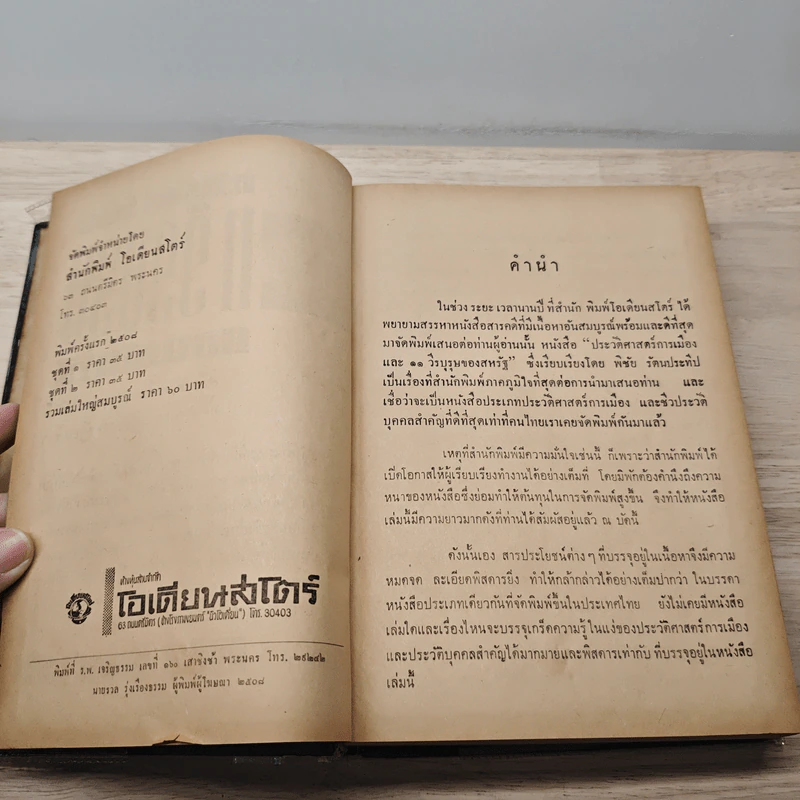 จัดพิมพ์จำหน่ายโดย
สำนักพิมพ์ โอเดียนสโตร์
๖๓ ถนนตรีมิตร พระนคร
โทร. ๓๐๔๐๓
พิมพ์ครั้งแรก ๒๕๐๘
ชุดที่ ๑ ราคา ๓๕ บาท
ชุดที่ ๒ ราคา ๓๕ บาท
รวมเล่มใหญ่สมบูรณ์ ราคา ๖๐ บาท
ห้างหุ้นส่วนจำกัด
โอเดียนสโตร์
63 ถนนตรีมิตร (ข้างโรงภาพยนตร์ "นิวโอเดียน") โทร. 30403
พิมพ์ที่ ร.พ. เจริญธรรม เลขที่ ๑๖๐ เสาชิงช้า พระนคร โทร. ๒๙๒๔๒
นายรวล รุ่งเรืองธรรม ผู้พิมพ์ผู้โฆษณา ๒๕๐๘
คำนำ
ในช่วง ระยะ เวลานานปี ที่ สำนัก พิมพ์โอเดียนสโตร์ ได้
พยายามสรรหาหนังสือสารคดีที่มีเนื้อหาอันสมบูรณ์พร้อมและดีที่สุด
มาจัดพิมพ์เสนอต่อท่านผู้อ่านนั้น หนังสือ "ประวัติศาสตร์การเมือง
และ ๑๑ วีรบุรุษของสหรัฐ" ซึ่งเรียบเรียงโดย พิชัย รัตนประทีป
เป็นเรื่องที่สำนักพิมพ์ภาคภูมิใจที่สุดต่อการนำมาเสนอท่าน และ
เชื่อว่าจะเป็นหนังสือประเภทประวัติศาสตร์การเมือง และชีวประวัติ
บุคคลสำคัญที่ดีที่สุดเท่าที่คนไทยเราเคยจัดพิมพ์กันมาแล้ว
เหตุที่สำนักพิมพ์มีความมั่นใจเช่นนี้ ก็เพราะว่าสำนักพิมพ์ได้
เปิดโอกาสให้ผู้เรียบเรียงทำงานได้อย่างเต็มที่ โดยมิพักต้องคำนึงถึงความ
หนาของหนังสือซึ่งย่อมทำให้ต้นทุนในการจัดพิมพ์สูงขึ้น จึงทำให้หนังสือ
เล่มนี้มีความยาวมากดังที่ท่านได้สัมผัสอยู่แล้ว ณ บัดนี้
ดังนั้นเอง สารประโยชน์ต่าง ๆ ที่บรรจุอยู่ในเนื้อหาจึงมีความ
หมดจด ละเอียดพิสดารยิ่ง ทำให้กล้ากล่าวได้อย่างเต็มปากว่า ในบรรดา
หนังสือประเภทเดียวกันที่จัดพิมพ์ขึ้นในประเทศไทย ยังไม่เคยมีหนังสือ
เล่มใดและเรื่องไหนจะบรรจุเกร็ดความรู้ ในแง่ของประวัติศาสตร์การเมือง
และประวัติบุคคลสำคัญได้มากมายและพิสดารเท่ากับ ที่บรรจุอยู่ในหนังสือ
เล่มนี้